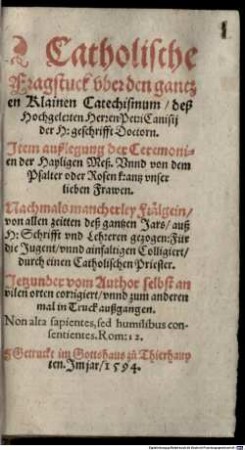 Catholische
Fragstuck vber den gantz
en Klainen Catechismum / deß
Hochgelerten Herren Petri Canisij
der H: geschrifft Doctorn.
Item außlegung der Ceremoni-
en der Hayligen Meß. Vnnd von dem
Psalter oder Rosenkrantz vnser
lieben Frawen.
Nachmals mancherley Frälgein /
von allen zeitten deß gantzen Jars / auß
H: Schrifft vnd Lehreren gezogen: Für
die Jugent / vnnd ainfaltigen Colligiert /
durch einen Catholischen Priester.
Jetzunder vom Author selbst an
vilen orten corrigiert / vnnd zum anderen
mal in Truck außgangen.
Non alta sapientes, sed humilibus con-
sentientes. Rom: 12.
Getruckt im Gottshaus zů Thierhaup
ten. Im jar / 1594.